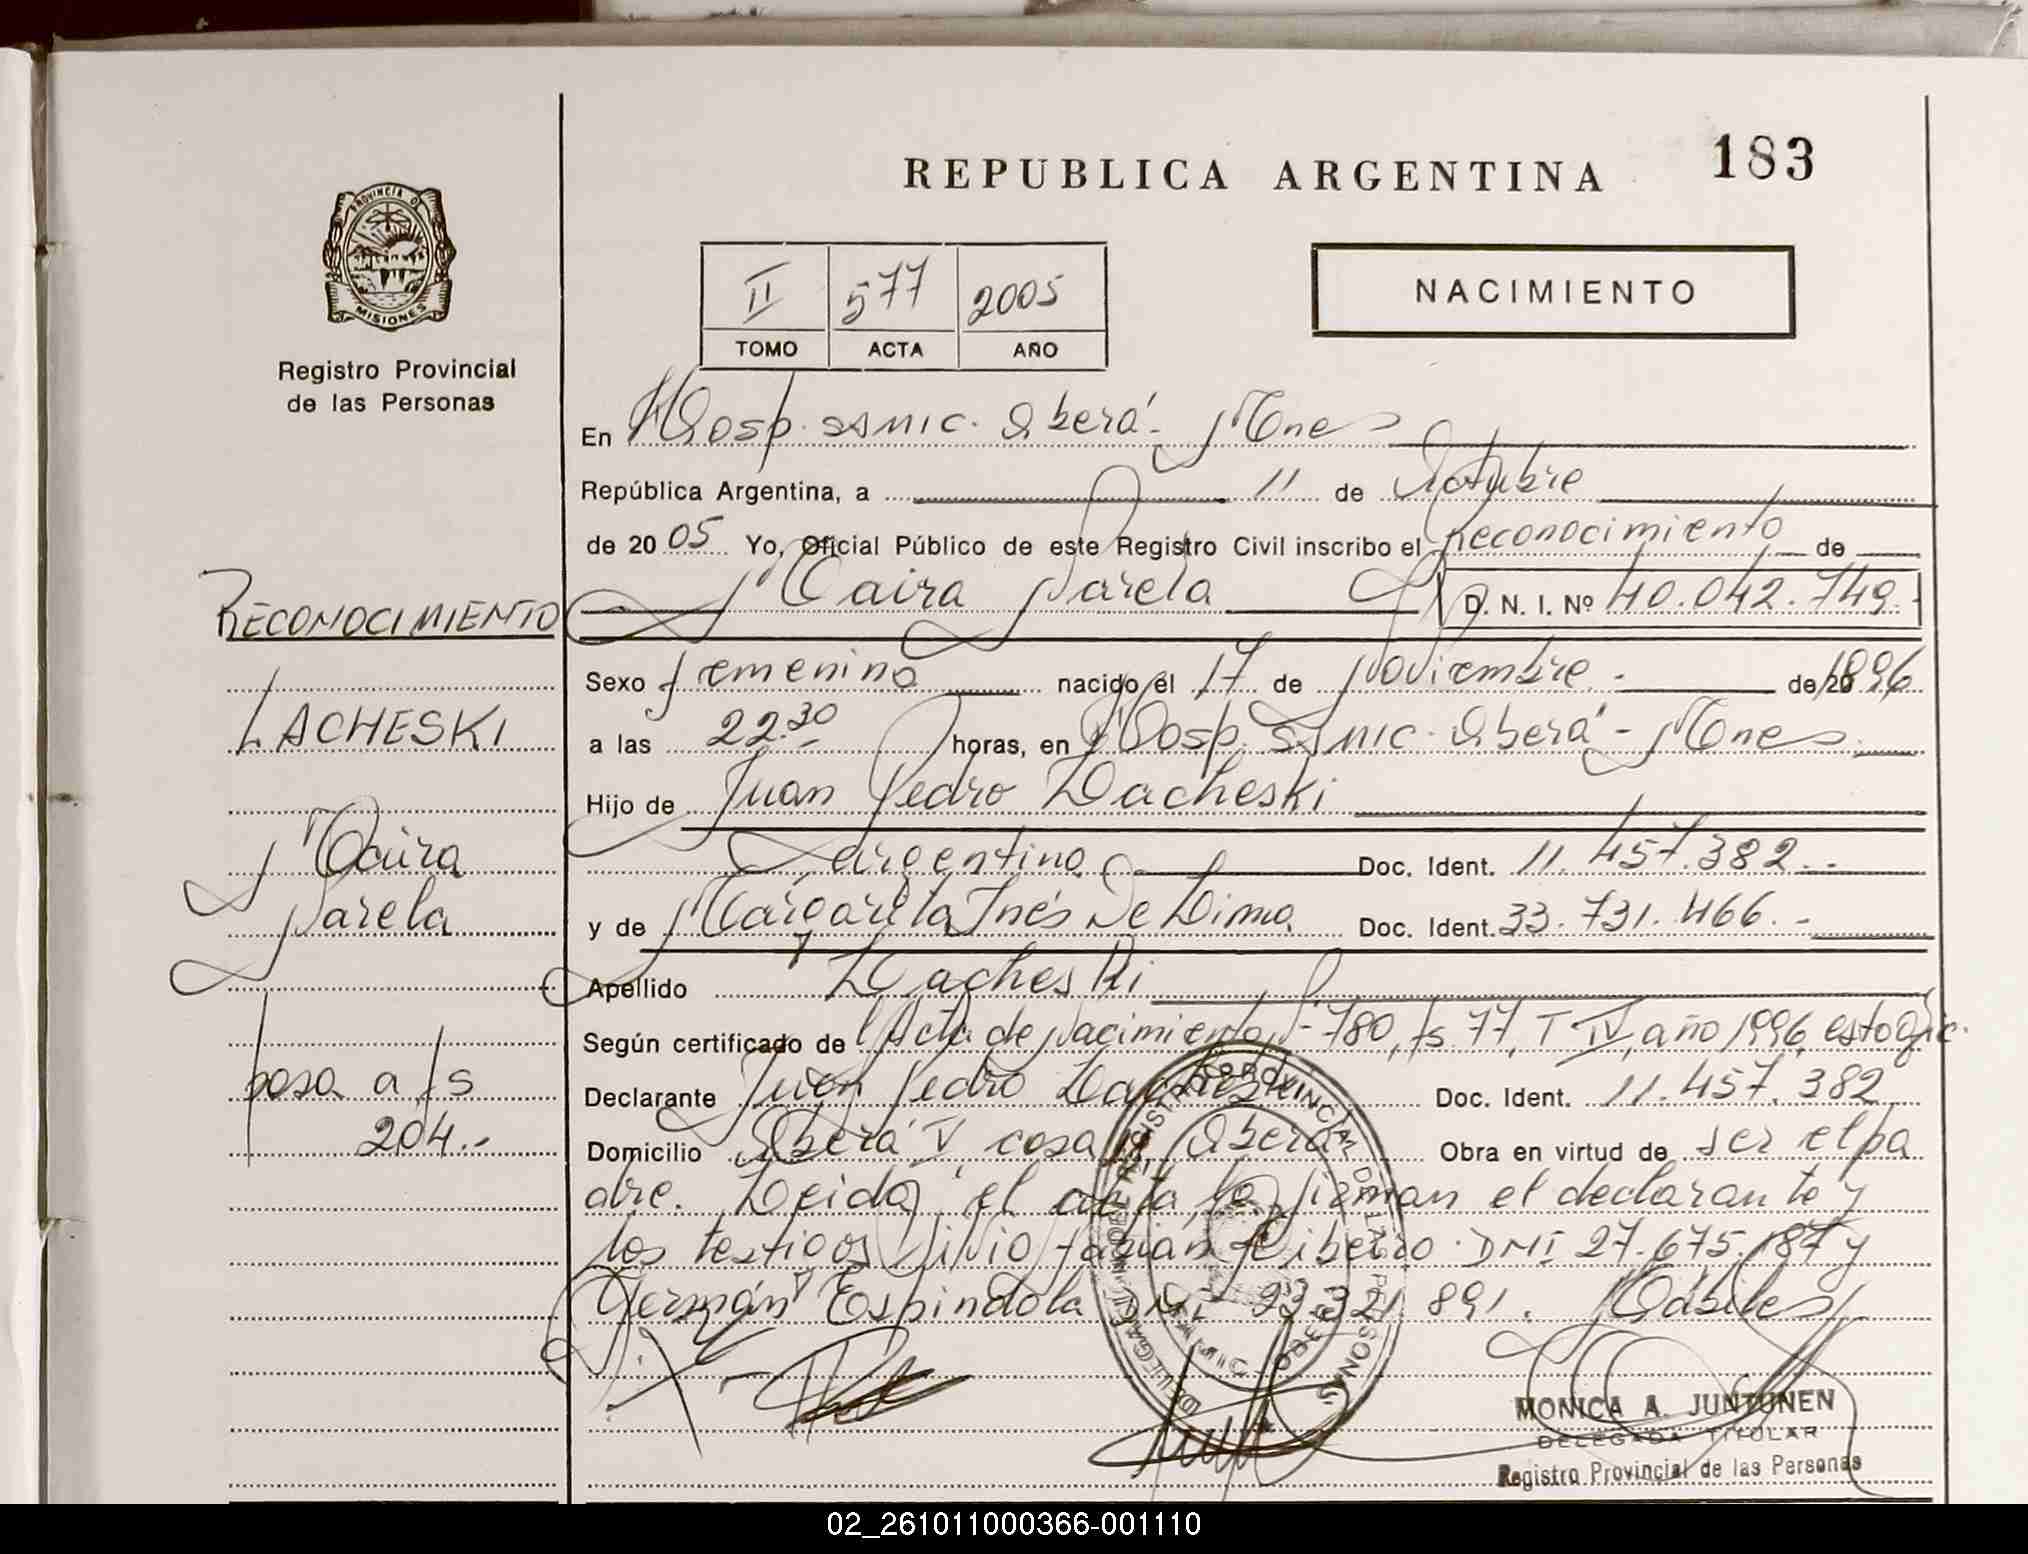 REPUBLICA ARGENTINA
183
PROVINCIA DE
MISIONES
Registro Provincial
de las Personas
II 577 2005
TOMO ACTA AÑO
NACIMIENTO
En Hosp. SSMIC. Oberá - Mnes
República Argentina, a 11 de Octubre
de 2005 Yo, Oficial Público de este Registro Civil inscribo el Reconocimiento de
Maira Varela D. N. I. Nº 40.042.749.-
Sexo femenino nacido el 17 de Noviembre.- de 20 1996
a las 22.30 horas, en Hosp. SSMIC. Oberá - Mnes
Hijo de Juan Pedro Lacheski
argentino Doc. Ident. 11.457.382.-
y de Margarita Inés De Lima Doc. Ident. 33.731.466.-
Apellido Lacheski
Según certificado de Acta de Nacimiento 780, fs 77, T IV, año 1996, esta ofic.
Declarante Juan Pedro Lacheski Doc. Ident. 11.457.382
Domicilio Oberá V, casa Oberá Obra en virtud de ser el pa
dre. Leida el acta, la firman el declarante y
los testigos Silvio Fabián Ribeiro DNI 27.675.187 y
Germán Espindola DNI 23.321.891.
RECONOCIMIENTO
LACHESKI
Maira
Varela
pasa a fs
204.-
REGISTRO PROVINCIAL DE LAS PERSONAS
MONICA A. JUNTUNEN
DELEGADA TITULAR
Registro Provincial de las Personas
02_261011000366-001110